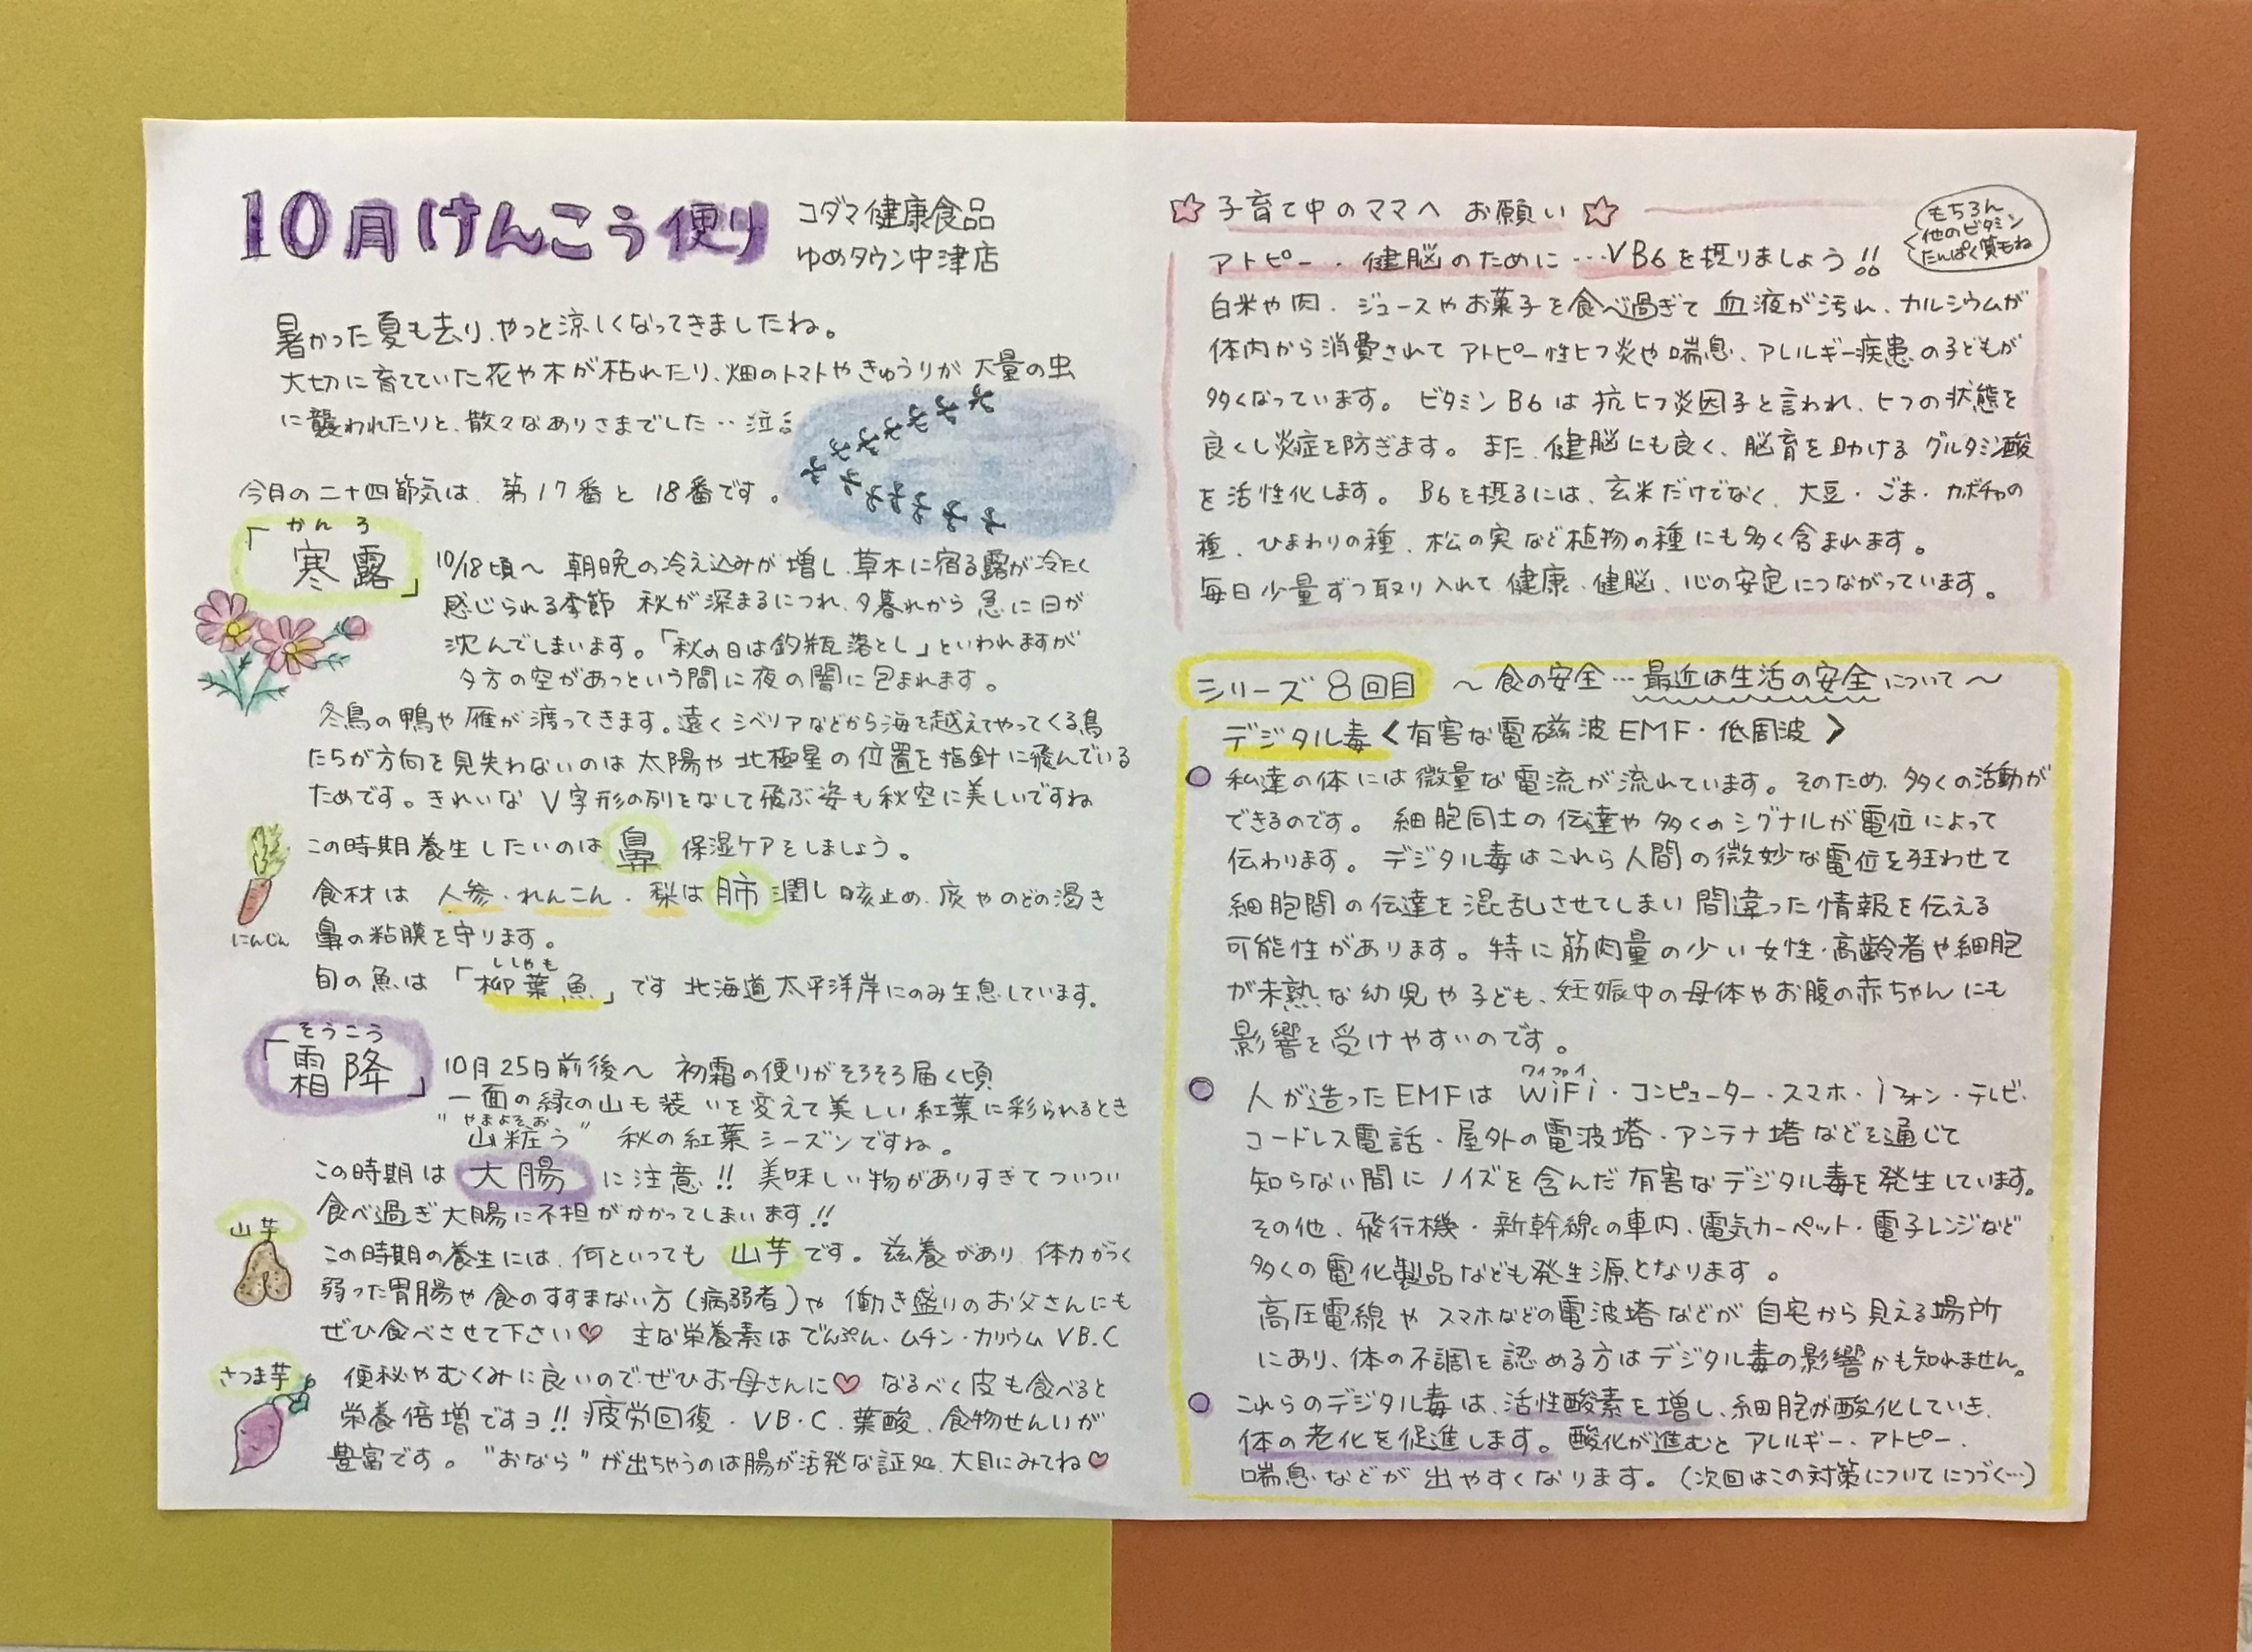 10月けんこう便り
コダマ健康食品
ゆめタウン中津店
暑かった夏も去り、やっと涼しくなってきましたね。
大切に育てていた花や木が枯れたり、畑のトマトやきゅうりが大量の虫
に襲われたりと、散々なありさまでした…泣
今月の二十四節気は、第17番と18番です。
かんろ
「寒露」
10/18頃〜 朝晩の冷え込みが増し、草木に宿る露が冷たく
感じられる季節 秋が深まるにつれ、夕暮れから急に日が
沈んでしまいます。「秋の日は釣瓶落とし」といわれますが
夕方の空があっという間に夜の闇に包まれます。
冬鳥の鴨や雁が渡ってきます。遠くシベリアなどから海を越えてやってくる鳥
たちが方向を見失わないのは太陽や北極星の位置を指針に飛んでいる
ためです。きれいなV字形の列をなして飛ぶ姿も秋空に美しいですね
この時期養生したいのは鼻 保湿ケアをしましょう。
食材は 人参・れんこん・梨は肺潤し咳止め、痰やのどの渇き
にんじん
鼻の粘膜を守ります。
ししゃも
旬の魚は「柳葉魚」です 北海道太平洋岸にのみ生息しています。
そうこう
「霜降」
10月25日前後〜 初霜の便りがそろそろ届く頃
一面の緑の山も装いを変えて美しい紅葉に彩られるとき
やまよそお
"山粧う" 秋の紅葉シーズンですね。
この時期は 大腸 に注意!! 美味しい物がありすぎてついつい
食べ過ぎ大腸に不担がかかってしまいます!!
山芋
この時期の養生には、何といっても 山芋 です。滋養があり、体力がつく
弱った胃腸や食のすすまない方(病弱者)や 働き盛りのお父さんにも
ぜひ食べさせて下さい♡ 主な栄養素はでんぷん、ムチン・カリウム VB.C
さつま芋
便秘やむくみに良いのでぜひお母さんに♡ なるべく皮も食べると
栄養倍増ですヨ!! 疲労回復・VB・C、葉酸、食物せんいが
豊富です。"おなら"が出ちゃうのは腸が活発な証処、大目にみてね♡
☆子育て中のママへ お願い☆
もちろん
他のビタミン
たんぱく質もね
アトピー・健脳のために…VB6を摂りましょう!!
白米や肉、ジュースやお菓子を食べ過ぎて血液が汚れ、カルシウムが
体内から消費されてアトピー性ヒフ炎や喘息、アレルギー疾患の子どもが
多くなっています。ビタミンB6は抗ヒフ炎因子と言われ、ヒフの状態を
良くし炎症を防ぎます。また、健脳にも良く、脳育を助けるグルタミン酸
を活性化します。B6を摂るには、玄米だけでなく、大豆・ごま・カボチャの
種、ひまわりの種、松の実など植物の種にも多く含まれます。
毎日少量ずつ取り入れて健康・健脳、心の安定につながっています。
シリーズ8回目 〜食の安全…最近は生活の安全について〜
デジタル毒<有害な電磁波EMF・低周波>
○ 私達の体には微量な電流が流れています。そのため、多くの活動が
できるのです。細胞同士の伝達や多くのシグナルが電位によって
伝わります。デジタル毒はこれら人間の微妙な電位を狂わせて
細胞間の伝達を混乱させてしまい間違った情報を伝える
可能性があります。特に筋肉量の少い女性・高齢者や細胞
が未熟な幼児や子ども、妊娠中の母体やお腹の赤ちゃんにも
影響を受けやすいのです。
ワイファイ
○ 人が造ったEMFは WiFi・コンピューター・スマホ・iフォン・テレビ・
コードレス電話・屋外の電波塔・アンテナ塔などを通じて
知らない間にノイズを含んだ有害なデジタル毒を発生しています。
その他、飛行機・新幹線の車内、電気カーペット・電子レンジなど
多くの電化製品なども発生源となります。
高圧電線やスマホなどの電波塔などが自宅から見える場所
にあり、体の不調を認める方はデジタル毒の影響かも知れません。
○ これらのデジタル毒は、活性酸素を増し、細胞が酸化していき、
体の老化を促進します。酸化が進むとアレルギー・アトピー・
喘息などが出やすくなります。(次回はこの対策についてにつづく…)